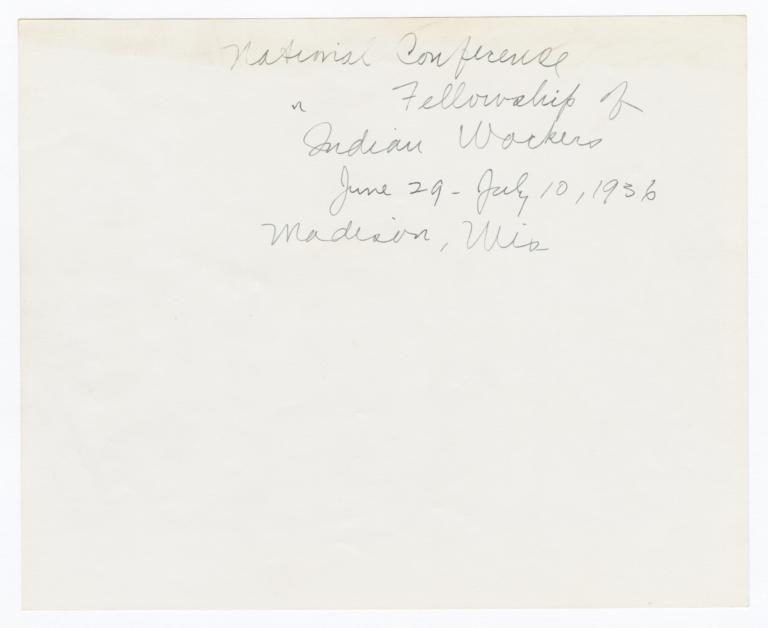 National Conference
" Fellowship of
Indian Workers
June 29 - July 10, 1936
Madison, Wis